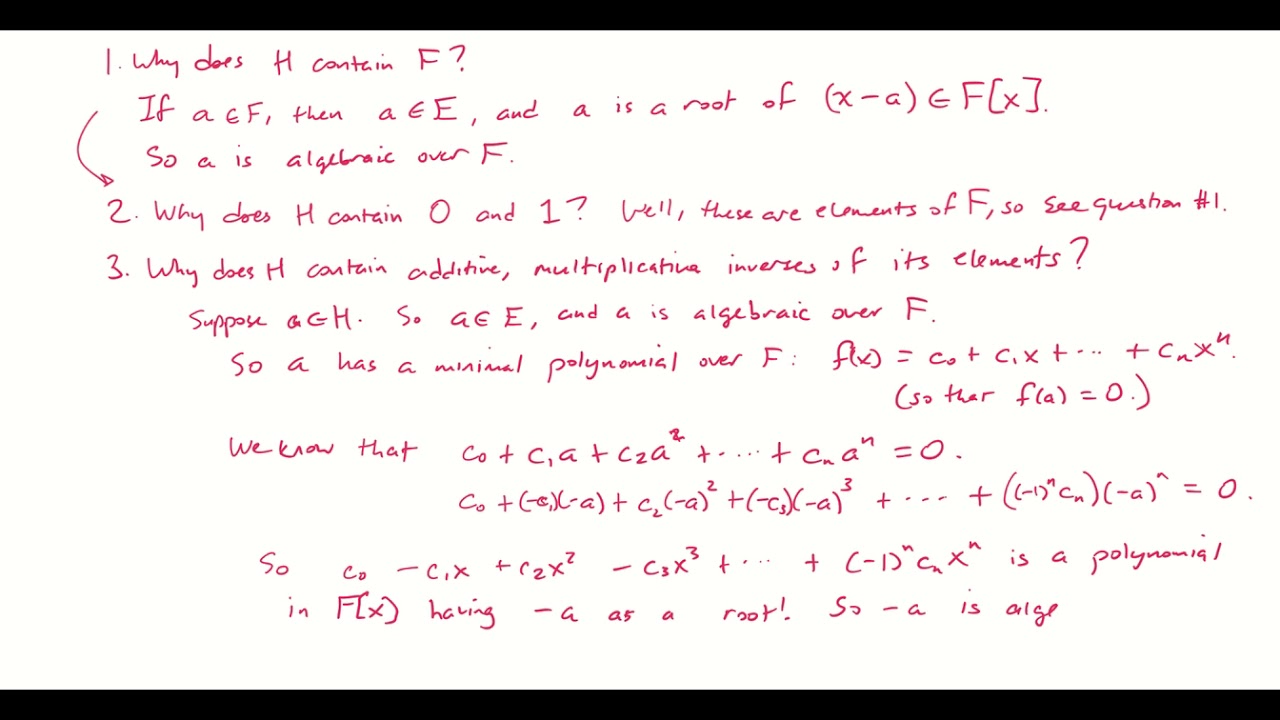 1. Why does H contain F?
If a ∈ F, then a ∈ E, and a is a root of (x-a) ∈ F[x].
So a is algebraic over F.
2. Why does H contain 0 and 1? Well, these are elements of F, so see question #1.
3. Why does H contain additive, multiplicative inverses of its elements?
Suppose a ∈ H. So a ∈ E, and a is algebraic over F.
So a has a minimal polynomial over F: f(x) = c₀ + c₁x + ··· + cₙxⁿ.
(so that f(a) = 0.)
We know that c₀ + c₁a + c₂a² + ··· + cₙaⁿ = 0.
c₀ + (-c₁)(-a) + c₂(-a)² + (-c₃)(-a)³ + ··· + ((-1)ⁿcₙ)(-a)ⁿ = 0.
So c₀ - c₁x + c₂x² - c₃x³ + ··· + (-1)ⁿcₙxⁿ is a polynomial
in F[x] having -a as a root! So -a is alge